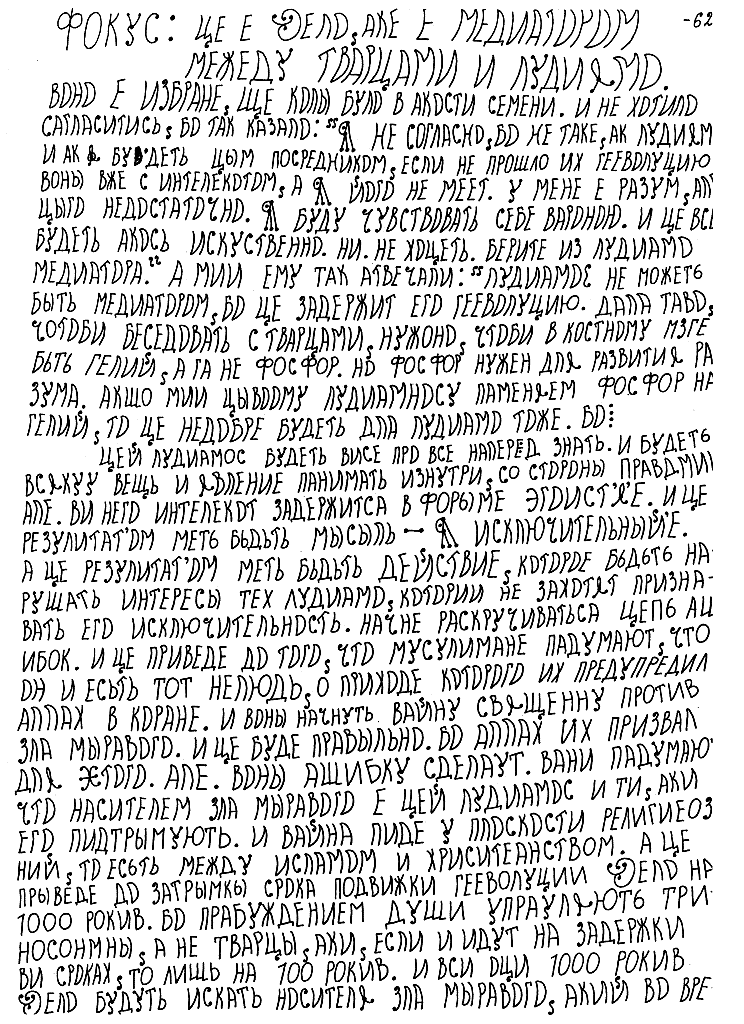 -62
ФОКУС: ЦЕ Е ЭЕЛО, АКЕ Е МЕДИАТОРОМ
МЕЖЕДУ ТВАРЦАМИ И ЛУДИЯМО.
ВОНО Е ИЗБРАНЕ, ЩЕ КОЛЫ БУЛО В АКОСТИ СЕМЕНИ. И НЕ ХОТИЛО
САГЛАСИТИСЬ, БО ТАК КАЗАЛО: "Я НЕ СОГЛАСНО, БО НЕ ТАКЕ, АК ЛУДИЯМ
И АК Я БУДЕТЬ ЦЫМ ПОСРЕДНИКОМ, ЕСЛИ НЕ ПРОШЛО ИХ ГЕЕВОЛУЦИЮ
ВОНЫ ВЖЕ С ИНТЕЛЕКОТОМ, А Я ЙОГО НЕ МЕЕТ. У МЕНЕ Е РАЗУМ, АЛЕ
ЦЫГО НЕДОСТАТОЧНО. Я БУДУ ЧУВСТВОВАТЬ СЕБЕ ВАРОНОЮ. И ЦЕ ВСЕ
БУДЕТЬ АКОСЬ ИСКУСТВЕННО. НИ. НЕ ХОЦЕТЬ. БЕРИТЕ ИЗ ЛУДИАМО
МЕДИАТОРА." А МИИ ЕМУ ТАК АТВЕЧАЛИ: "ЛУДИАМОС НЕ МОЖЕТЬ
БЫТЬ МЕДИАТОРОМ, БО ЦЕ ЗАДЕРЖИТ ЕГО ГЕЕВОЛУЦИЮ. ДАЛА ТАВО,
ЧОТОБИ БЕСЕДОВАТЬ С ТВАРЦАМИ, НУЖОНО, ЧТОБИ В КОСТНОМУ МЗГЕ
БЫТЬ ГЕЛИЙ, А ГА НЕ ФОСФОР. НО ФОСФОР НУЖЕН ДЛЯ РАЗВИТИЯ РА
ЗУМА. АКШО МИИ ЦЫВОМУ ЛУДИАМНОСУ ПАМЕНЯЕМ ФОСФОР НА
ГЕЛИЙ, ТО ЦЕ НЕДОБРЕ БУДЕТЬ ДЛА ЛУДИАМО ТОЖЕ. БО:
ЦЕЙ ЛУДИАМОС БУДЕТЬ ВИСЕ ПРО ВСЕ НАПЕРЕД ЗНАТЬ. И БУДЕТЬ
ВСЯКУУ ВЕЩЬ И ЯВЛЕНИЕ ПАНИМАТЬ ИЗНУТРИ, СО СТОРОНЫ ПРАВДМИИ
АЛЕ. ВИ НЕГО ИНТЕЛЕКОТ ЗАДЕРЖИТСА В ФОРЫМЕ ЭГОИСТ'Я'Е. И ЦЕ
РЕЗУЛИТАТ'ОМ МЕТЬ БЫДЬТЬ МЫСЫЛЬ — Я ИСКЛЮЧИТЕЛЬНЫЙ'Е.
А ЦЕ РЕЗУЛИТАТ'ОМ МЕТЬ БЫДЬТЬ ДЕЙСТВИЕ, КОТОРОЕ БЫДЬТЬ НА-
РУШАТЬ ИНТЕРЕСЫ ТЕХ ЛУДИАМО, КОТОРИИ НЕ ЗАХОТЯТ ПРИЗНА-
ВАТЬ ЕГО ИСКЛЮЧИТЕЛЬНОСТЬ. НАЧНЕ РАСКРУЧИВАТЬСА ЦЕПЬ АШ
ИБОК. И ЦЕ ПРИВЕДЕ ДО ТОГО, ЧТО МУСУЛИМАНЕ ПАДУМАЮТ, ЧТО
ОН И ЕСЬТЬ ТОТ НЕЛЮДЬ, О ПРИХОДЕ КОТОРОГО ИХ ПРЕДУПРЕДИЛ
АЛЛАХ В КОРАНЕ. И ВОНЫ НАЧНУТЬ ВАЙНУ СВЯЩЕННУ ПРОТИВ
ЗЛА МЫРАВОГО. И ЦЕ БУДЕ ПРАВЫЛЬНО. БО АЛЛАХ ИХ ПРИЗВАЛ
ДЛЯ ЭТОГО. АЛЕ. ВОНЫ АШИБКУ СДЕЛАУТ. ВАНИ ПАДУМАЮ
ЧТО НАСИТЕЛЕМ ЗЛА МЫРАВОГО Е ЦЕЙ ЛУДИАМОС И ТИ, АКИ
ЕГО ПИДТРЫМУЮТЬ. И ВАЙНА ПИДЕ У ПЛОСКОСТИ РЕЛИГИЕОЗ
НИЙ, ТО ЕСЬТЬ МЕЖДУ ИСЛАМОМ И ХРИСИТЕАНСТВОМ. А ЦЕ
ПРЫВЕДЕ ДО ЗАТРЫМКЫ СРОКА ПОДВИЖКИ ГЕЕВОЛУЦИИ ЭЕЛО НА
1000 РОКИВ. БО ПРАБУЖДЕНИЕМ ДУШИ УПРАУЛЯЮТЬ ТРИ
НОСОНМНЫ, А НЕ ТВАРЦЫ, АКИ, ЕСЛИ И ИДУТ НА ЗАДЕРЖКИ
ВИ СРОКАХ, ТО ЛИШЬ НА 100 РОКИВ. И ВСИ ОЦИ 1000 РОКИВ
ЭЕЛО БУДУТЬ ИСКАТЬ НОСИТЕЛЯ ЗЛА МЫРАВОГО, АКИЙ ВО ВРЕ-